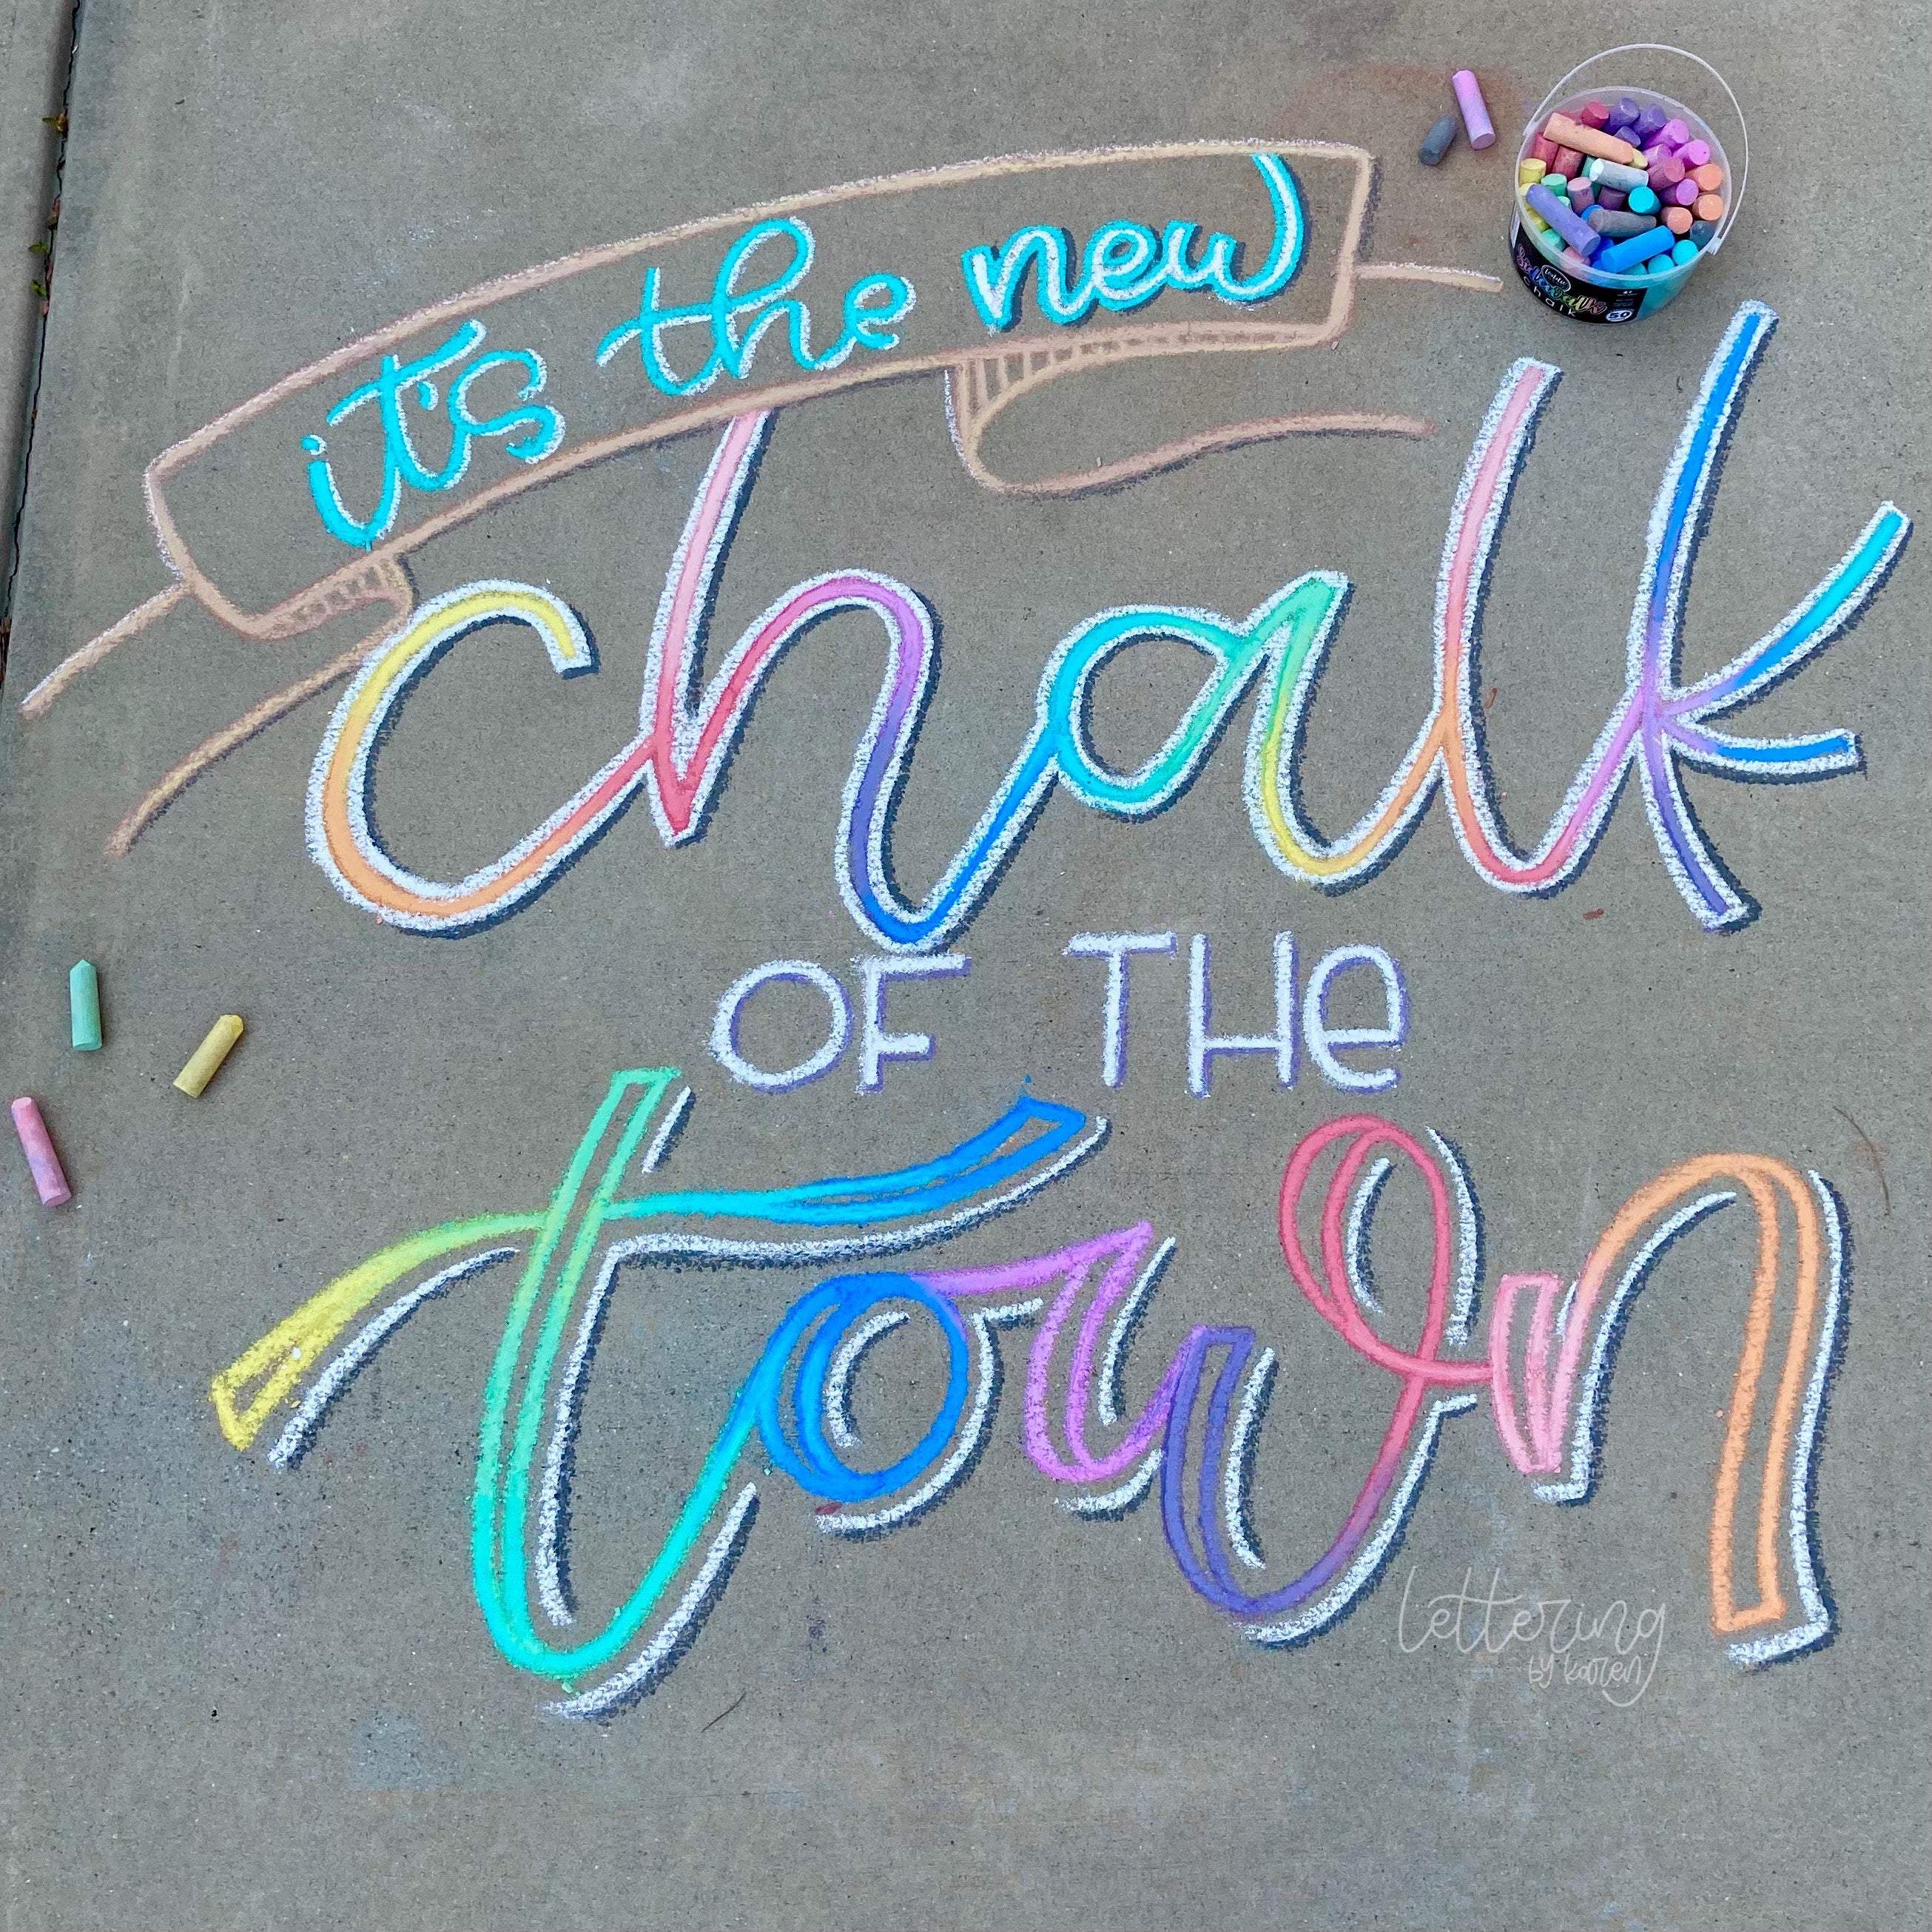 it's the new
chalk
OF THE
town
lettering
by karen
Sidewalk
chalk
50